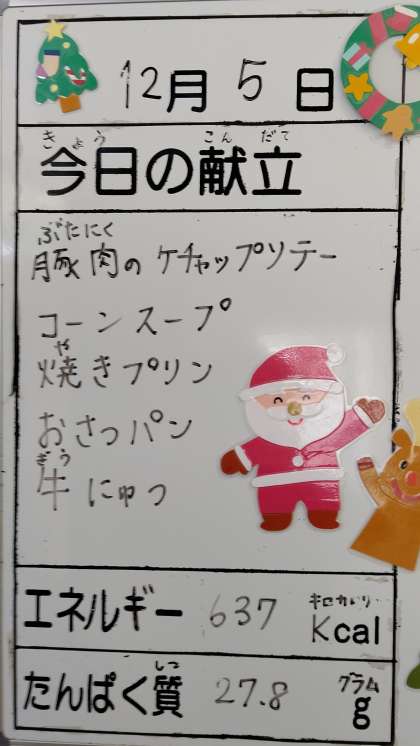 12月 5 日
きょう こん だて
今日の献立
ぶたにく
豚肉の ケチャップソテー
コーンスープ
や
焼きプリン
おさつパン
ぎう
牛にゅう
エネルギー 637 キロカロリー Kcal
しつ
たんぱく質 27.8 グラム g